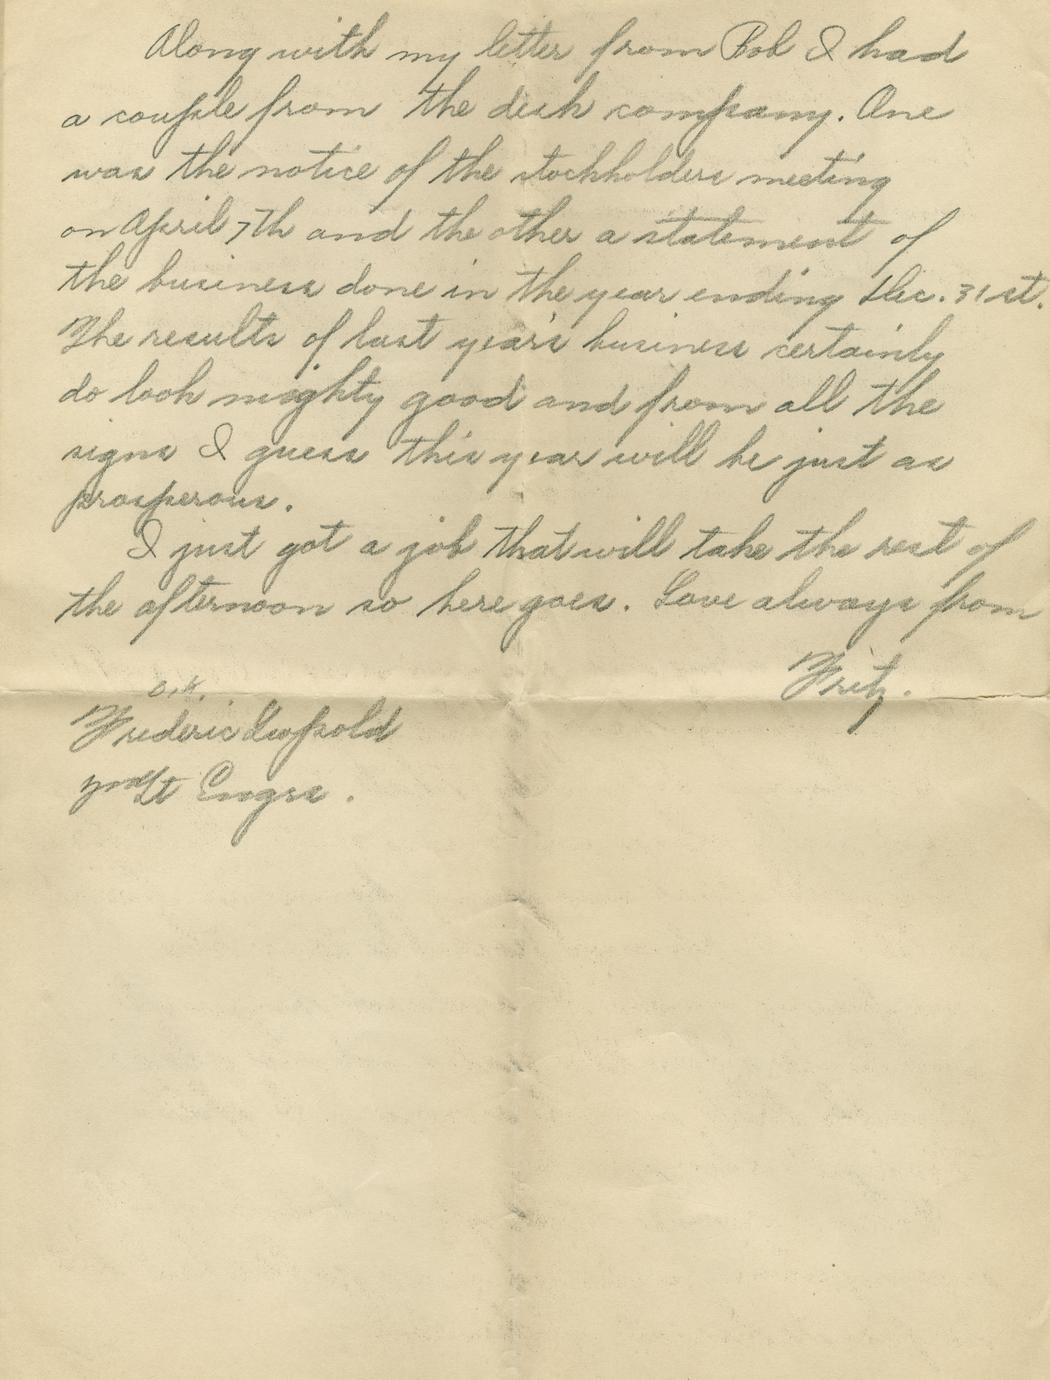 Along with my letter from Bob I had
a couple from the desk company. One
was the notice of the stockholders meeting
on April 7th and the other a statement of
the business done in the year ending Dec. 31st.
The results of last year's business certainly
do look mighty good and from all the
signs I guess this year will be just as
prosperous.
I just got a job that will take the rest of
the afternoon so here goes. Love always from
Fritz.
O.K.
Frederic Leopold
2nd Lt Engrs.